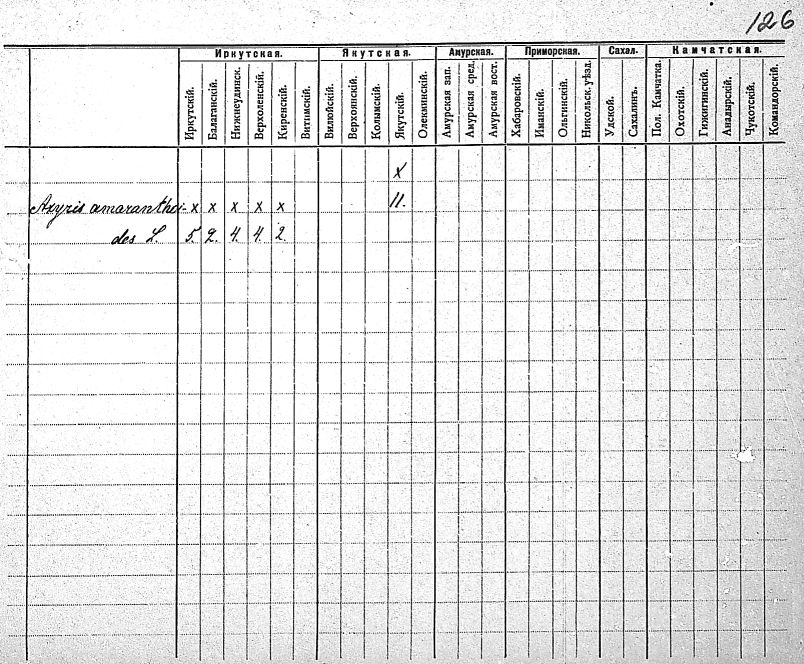 126
Иркутская. Якутская. Амурская. Приморская. Сахал. Камчатская.
Иркутскій. Балаганскій. Нижнеудинск. Верхоленскій. Киренскій. Витимскій. Вилюйскій. Верхоянскій. Колымскій. Якутскій. Олекминскій. Амурская зап. Амурская сред. Амурская вост. Хабаровскій. Иманскій. Ольгинскій. Никольск. уѣзд. Удской. Сахалинъ. Пол. Камчатка. Охотскій. Гижигинскій. Анадырскій. Чукотскій. Командорскій.
x
Axyris amaranthoi- x x x x x 11.
des L. 5. 2. 4. 4. 2.